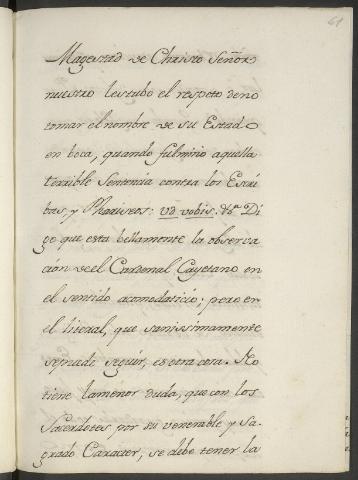 61
Magestad de Christo Señor
nuestro lestubo el respeto deno
tomar el nombre de su Estado
en boca, quando fulmino aquella
terrible Sentencia contra los Escri
bas, y Phariseos: vd vobis. &a. Di
ge que esta bellamente la observa
ción del Cardenal Cayetano en
el sentido acomodaticio; pero en
el literal, que sanissimamente
sepuede seguir, es otra cosa. No
tiene lamenor duda, que con los
Sacerdotes por su venerable y Sa
grado Caracter, se debe tener la